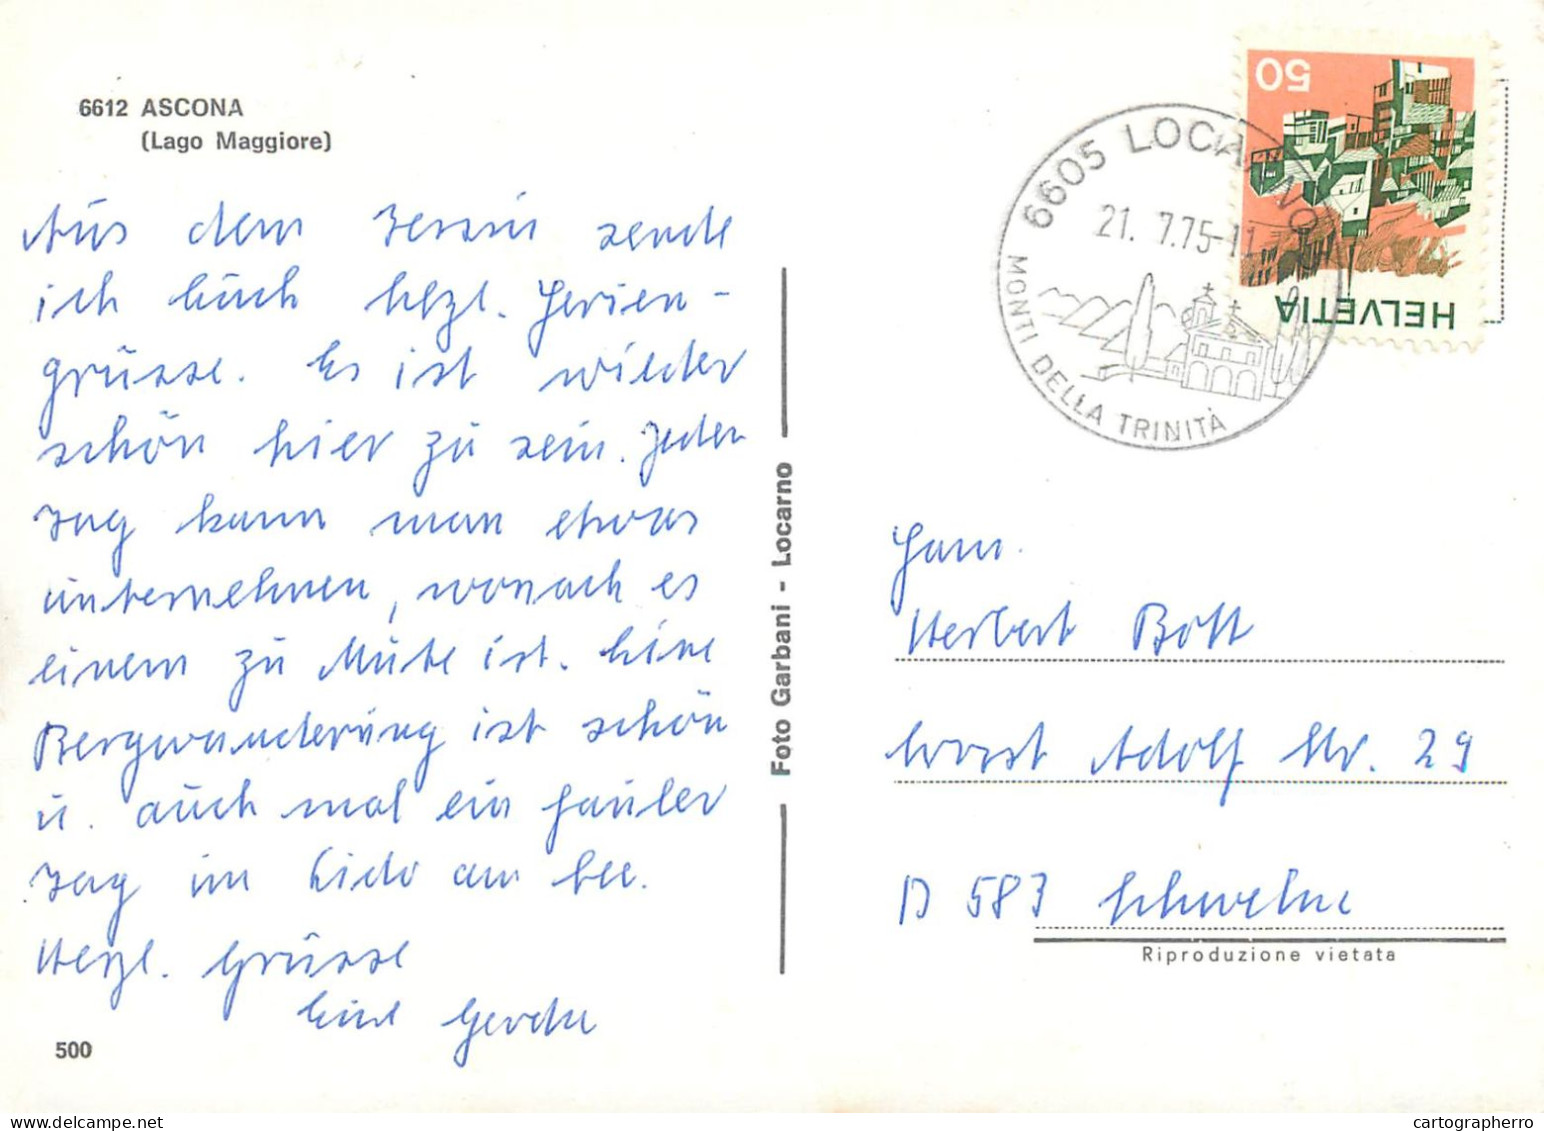 6612 ASCONA
(Lago Maggiore)
Aus dem Tessin sende
ich Euch herzl. Ferien-
grüsse. Es ist wieder
schön hier zu sein. Jeden
Tag kann man etwas
unternehmen, wonach es
einem zu Mute ist. Eine
Bergwanderung ist schön
u. auch mal ein fauler
Tag im Lido am See.
Herzl. Grüsse
Eure Gerda
500
Foto Garbani - Locarno
50
HELVETIA
6605 LOCARNO
21. 7.75-11
MONTI DELLA TRINITÀ
Fam.
Herbert Bott
Ernst Adolf Str. 29
D 583 Schwelm
Riproduzione vietata
cartographerro